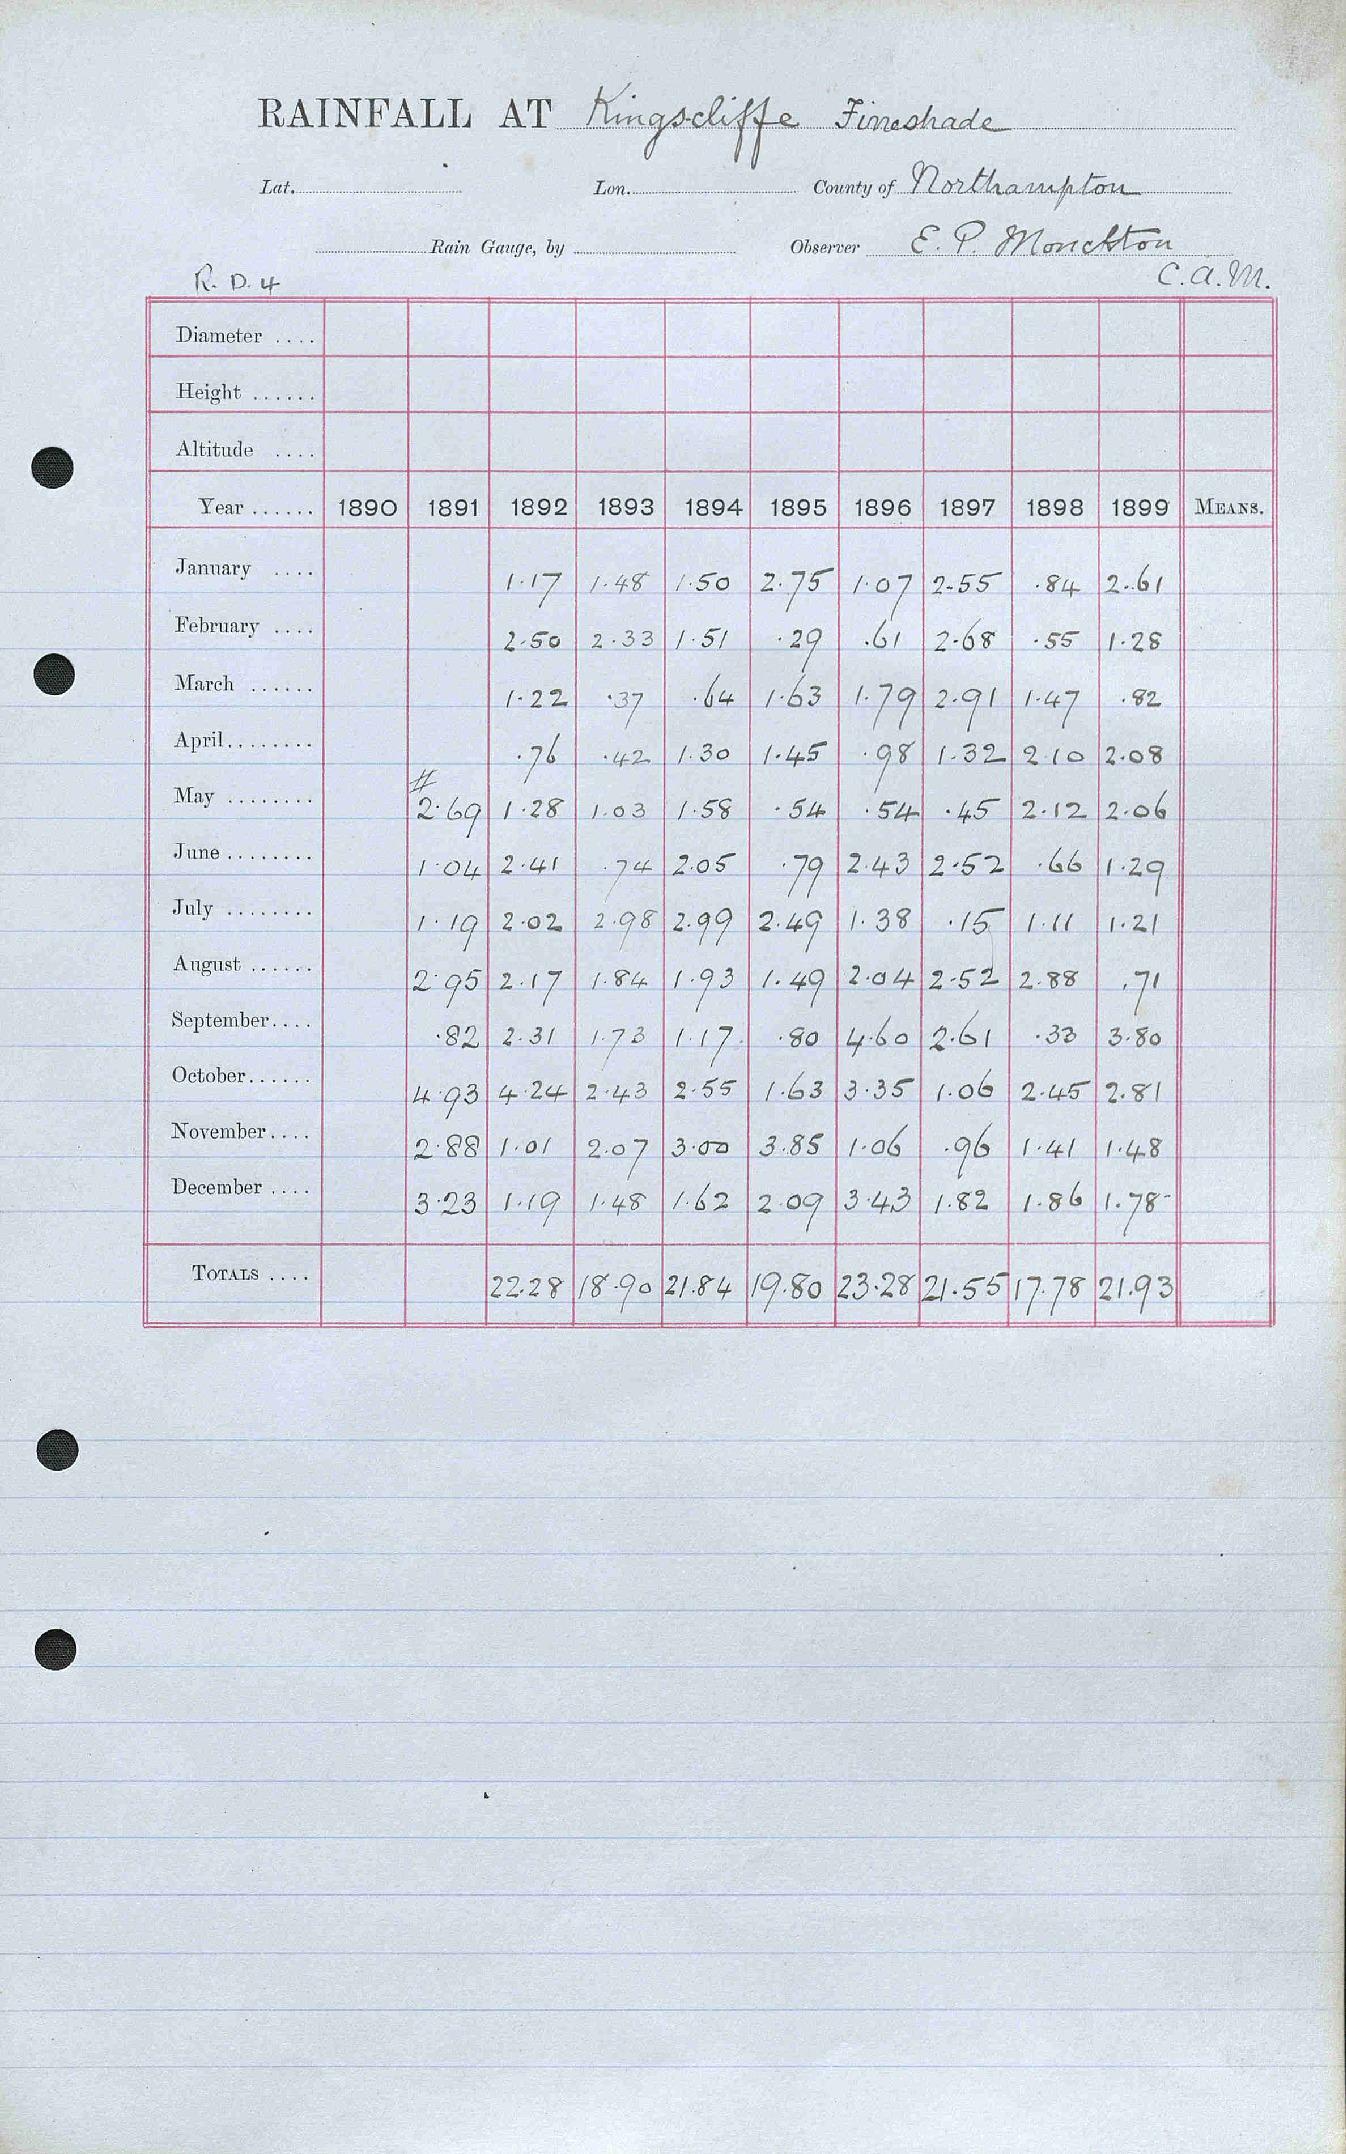 RAINFALL AT Kingscliffe Fineshade
Lat. Lon. County of Northampton
Rain Gauge, by Observer E. P. Monckton
R. D. 4 C.A.M.
Diameter ....
Height ......
Altitude ....
Year ...... 1890 1891 1892 1893 1894 1895 1896 1897 1898 1899 MEANS.
January .... 1.17 1.48 1.50 2.75 1.07 2.55 .84 2.61
February .... 2.50 2.33 1.51 .29 .61 2.68 .55 1.28
March ...... 1.22 .37 .64 1.63 1.79 2.91 1.47 .82
April........ .76 .42 1.30 1.45 .98 1.32 2.10 2.08
#
May ........ 2.69 1.28 1.03 1.58 .54 .54 .45 2.12 2.06
June ........ 1.04 2.41 .74 2.05 .79 2.43 2.52 .66 1.29
July ........ 1.19 2.02 2.98 2.99 2.49 1.38 .15 1.11 1.21
August ...... 2.95 2.17 1.84 1.93 1.49 2.04 2.52 2.88 .71
September.... .82 2.31 1.73 1.17 .80 4.60 2.61 .33 3.80
October...... 4.93 4.24 2.43 2.55 1.63 3.35 1.06 2.45 2.81
November.... 2.88 1.01 2.07 3.00 3.85 1.06 .96 1.41 1.48
December .... 3.23 1.19 1.48 1.62 2.09 3.43 1.82 1.86 1.78
TOTALS .... 22.28 18.90 21.84 19.80 23.28 21.55 17.78 21.93